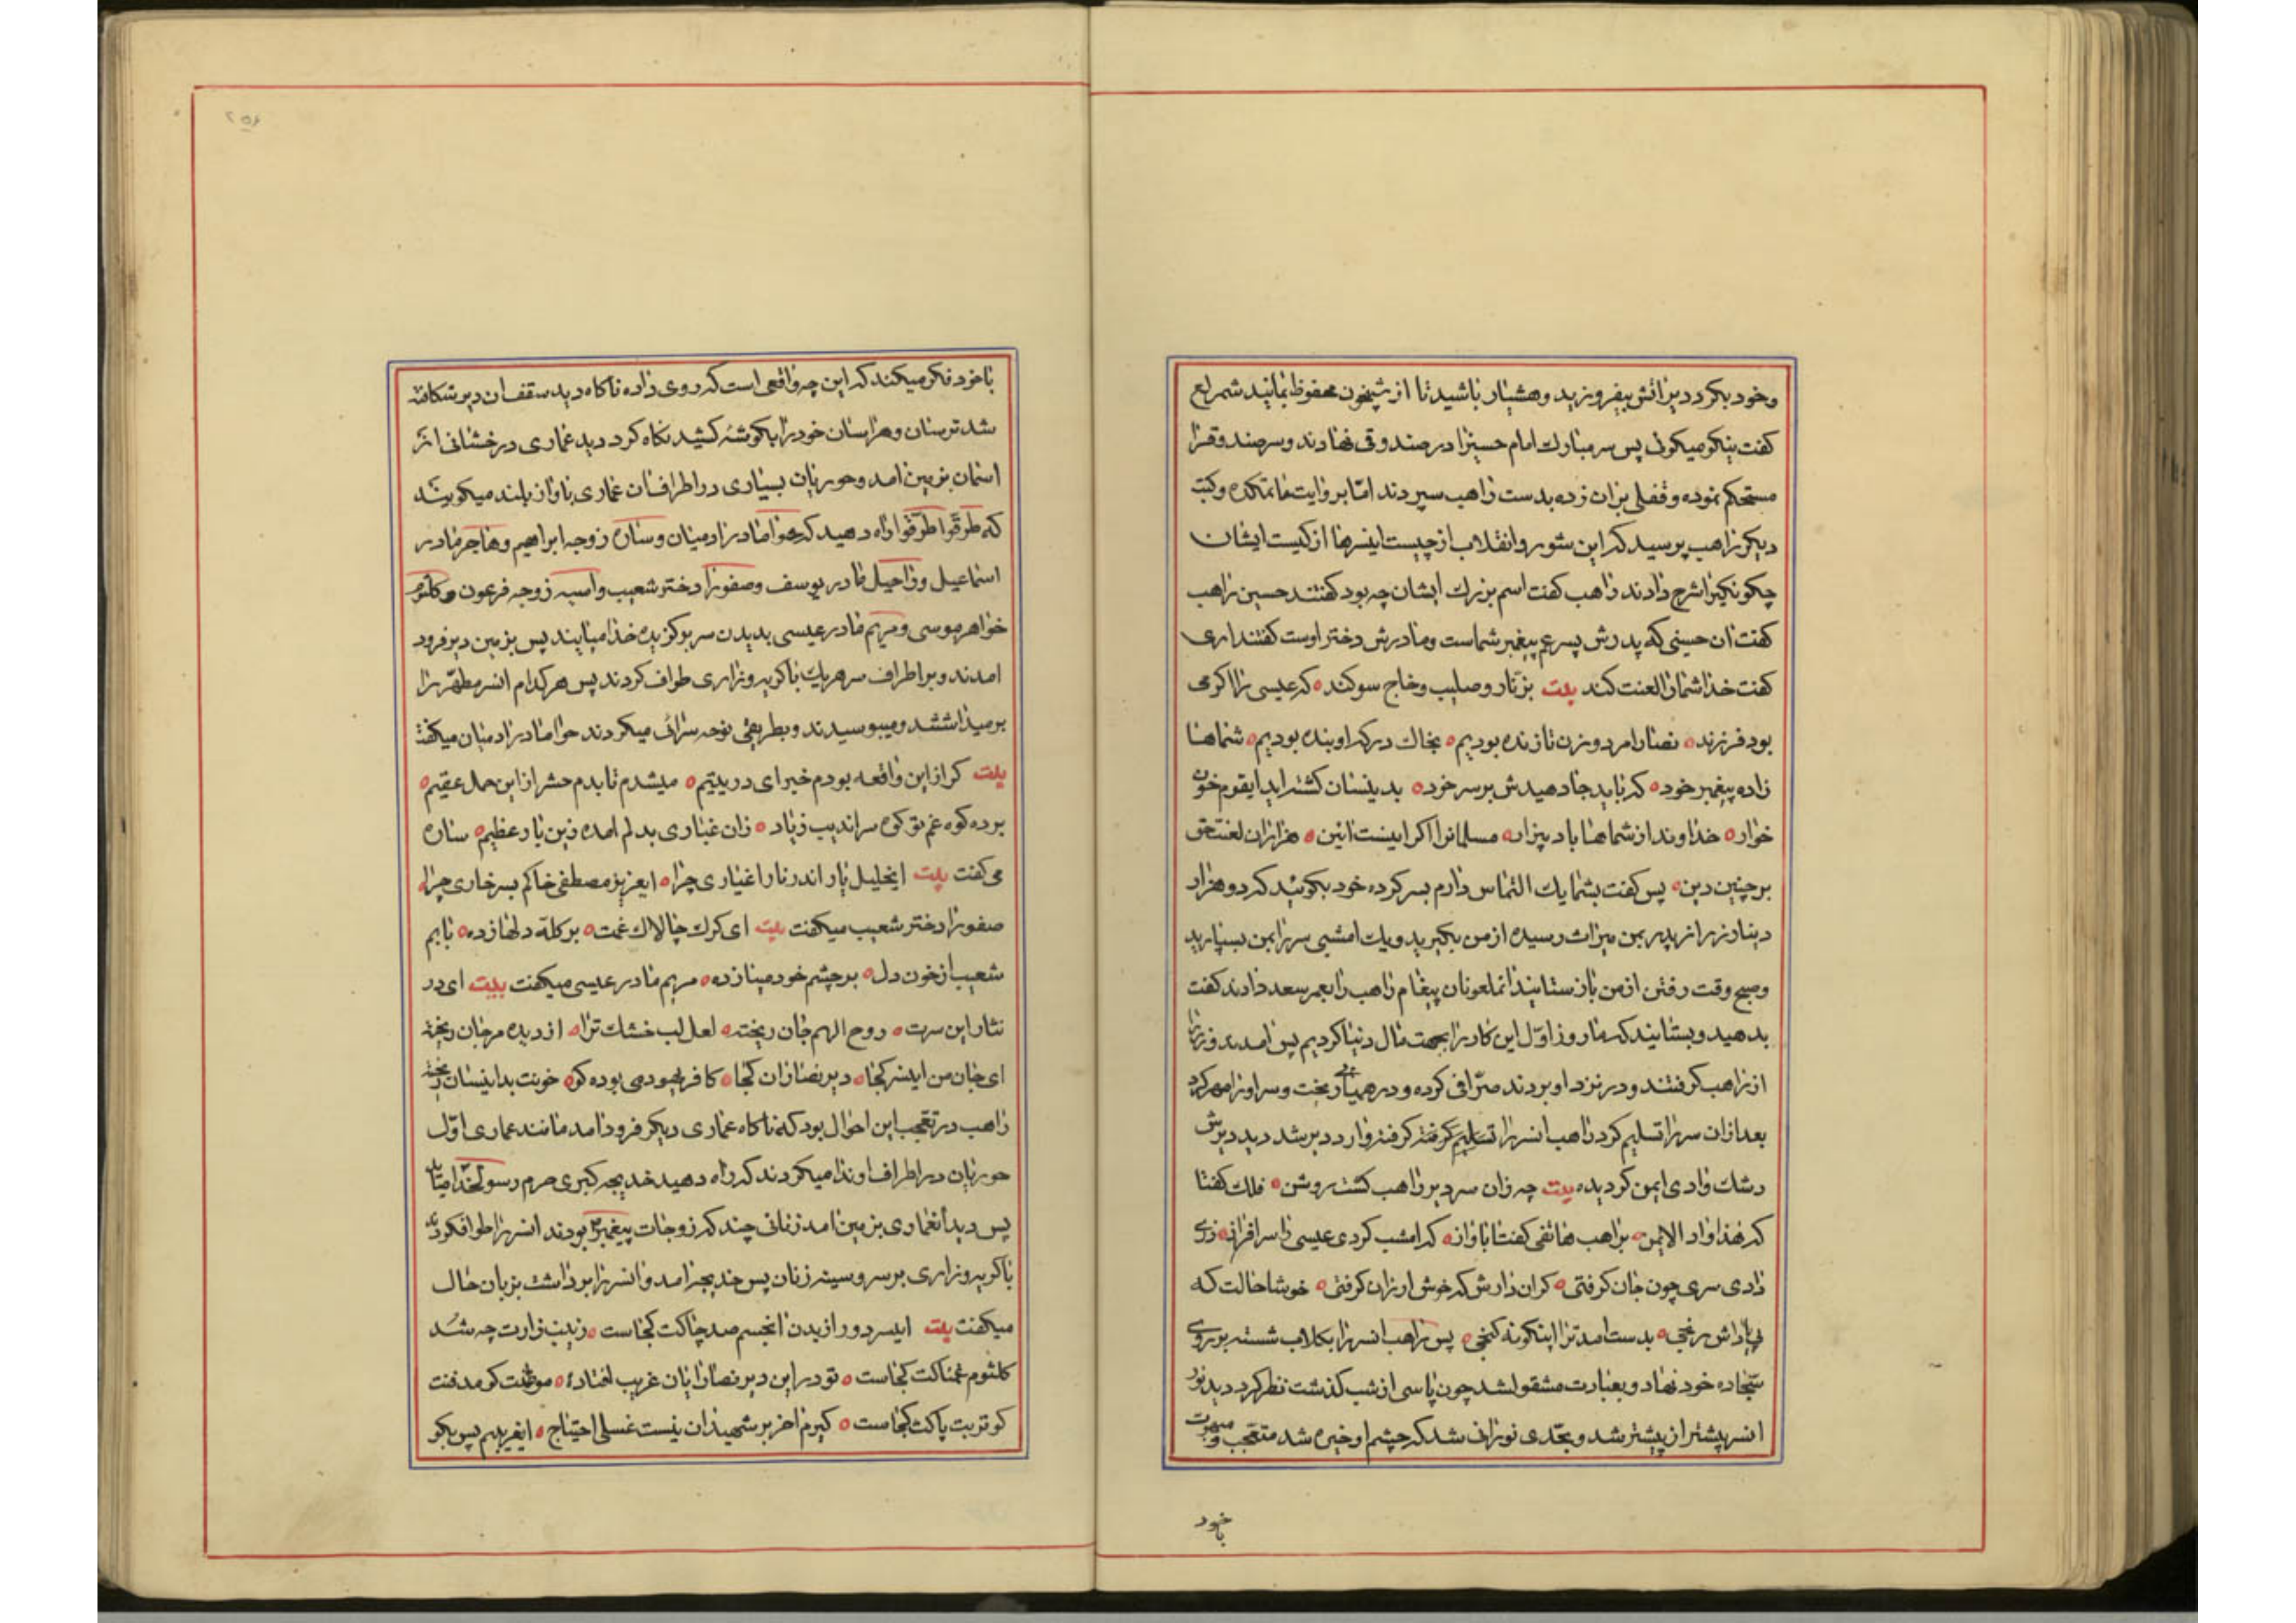 وخود بکرد دیر آتش بیفروزید وهشیار باشید تا از شبخون محفوظ بمانید شمر لع
کفت نیکو میکوئی پس سر مبارك امام حسینرا در صندوقی نهادند وسر صندوقرا
مستحکم نموده وقفلی بران زده بدست راهب سپردند اما بروایت ماتمکده وکتب
دیکر راهب پرسید که این شور وانقلاب از چیست اینسرها از کیست ایشان
چکونکیرا شرح دادند راهب کفت اسم بزرك ایشان چه بود کفتند حسین راهب
کفت ان حسینی که پدرش پسر عم پیغمبر شماست ومادرش دختر اوست کفتند اری
کفت خدا شمارا لعنت کند بیت بزنار وصلیب وخاج سوکند که عیسی را اکر می
بود فرزند نصارا مرد وزن تا زنده بودیم بخاك درکه او بنده بودیم شماها
زاده پیغمبر خود که باید جا دهیدش بر سر خود بدینسان کشته اید ایقوم خون
خوار خداوند از شماها باد بیزار مسلمانرا اکر اینست ائین هزاران لعنت حق
بر چنین دین پس کفت بشما یك التماس دارم بسر کرده خود بکوئید که دو هزار
دینار زر از پدر بمن میراث رسیده از من بکیرید ویك امشبی سر را بمن بسپارید
وصبح وقت رفتن از من باز ستانید انملعونان پیغام راهب را بعمر سعد دادند کفت
بدهید وبستانید که ما روز اول این کار را بجهت مال دنیا کردیم پس امدند وزر را
از راهب کرفتند ودر نزد او بردند صرافی کرده ودر همیان ریخت وسر او را مهر کرد
بعد از ان سر را تسلیم کرد راهب انسر را تسلیم کرفته کرفته وارد دیر شد دید دیرش
رشك وادی ایمن کردیده بیت چه زان سر دیر راهب کشت روشن فلك کفتا
که هذا واد الایمن براهب هاتفی کفتا باواز که امشب کردی عیسی را سرافراز زری
دادی سری چون جان کرفتی کران دارش که خوش ارزان کرفتی خوشا حالت که
بی پاداش رنجی بدست امد ترا اینکونه کنجی پس راهب انسر را بکلاب شسته بر روی
سجاده خود نهاد وبعبادت مشقولشد چون پاسی از شب کذشت نظر کرد دید نور
انسر پیشتر از پیشتر شد وبحدی نورانی شد که چشم او خیره شد متعجب ومبهوت
با خود
۲۵۶
با خود فکر میکند که این چه واقعی است که روی داده ناکاه دید سقف ان دیر شکافته
شد ترسان وهراسان خود را بکوشه کشید نکاه کرد دید عماری درخشانی از
اسمان بزمین امد وحوریان بسیاری در اطراف ان عماری باواز بلند میکویند
که طرقوا طرقوا راه دهید که حوا مادر ادمیان وساره زوجه ابراهیم وهاجر مادر
اسماعیل وراحیل مادر یوسف وصفورا دختر شعیب واسیه زوجه فرعون وکلثوم
خواهر موسی ومریم مادر عیسی بدیدن سر برکزیده خدا میایند پس بزمین دیر فرود
امدند وبر اطراف سر هریك با کریه وزاری طواف کردند پس هر کدام انسر مطهر را
بر میداشتند ومیبوسیدند وبطریقی نوحه سرائی میکردند حوا مادر ادمیان میکفت
بیت کر از این واقعه بودم خبر ای در یتیم میشدم تا بدم حشر از این حمل عقیم
برده کوه غم تو کوه سراندیب زیاد زان غباری بدلم امده زین بار عظیم ساره
می کفت بیت ایخلیل یار اندر نار اغیاری چرا ایعزیز مصطفی خاکم بسر خاری چرا
صفورا دختر شعیب میکفت بیت ای کرك چالاك غمت بر کله دلها زده بابم
شعیب از خون دل بر چشم خود مینا زده مریم مادر عیسی میکفت بیت ای در
نثار این سرت روح الهم جان ریخته لعل لب خشك ترا از دیده مرجان ریخته
ای جان من اینسر کجا دیر نصارا ان کجا کافر یهودمی بوده کو خونت بداینسان ریخته
راهب در تعجب این احوال بود که ناکاه عماری دیکر فرود امد مانند عماری اول
حوریان در اطراف او ندا میکردند که راه دهید خدیجه کبری حرم رسولخدا میاید
پس دید انعماری بزمین امد زنانی چند که زوجات پیغمبر بودند انسر را طواف کردند
با کریه وزاری بر سر وسینه زنان پس خدیجه امد وانسر را بر داشت بزبان حال
میکفت بیت ایسر دور از بدن انجسم صد چاکت کجاست زینب زارت چه شد
کلثوم غمناکت کجاست تو در این دیر نصارا یان غریب افتادۀ موطنت کو مدفنت
کو تربت پاکت کجاست کیرم اخر بر شهیدان نیست غسلی احتیاج ایغریبم پس بکو